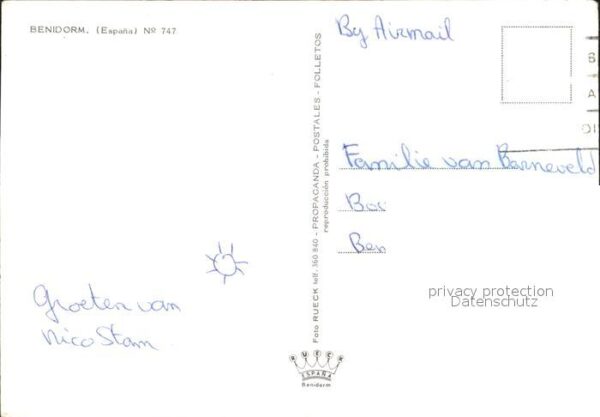 BENIDORM. (España) Nº 747
Groeten van
Nico Stam
Foto RUECK telf. 360 840 - PROPAGANDA - POSTALES - FOLLETOS
reproducción prohibida
RUECK
ESPAÑA
Benidorm
By Airmail
Familie van Barneveld
Ben
privacy protection
Datenschutz